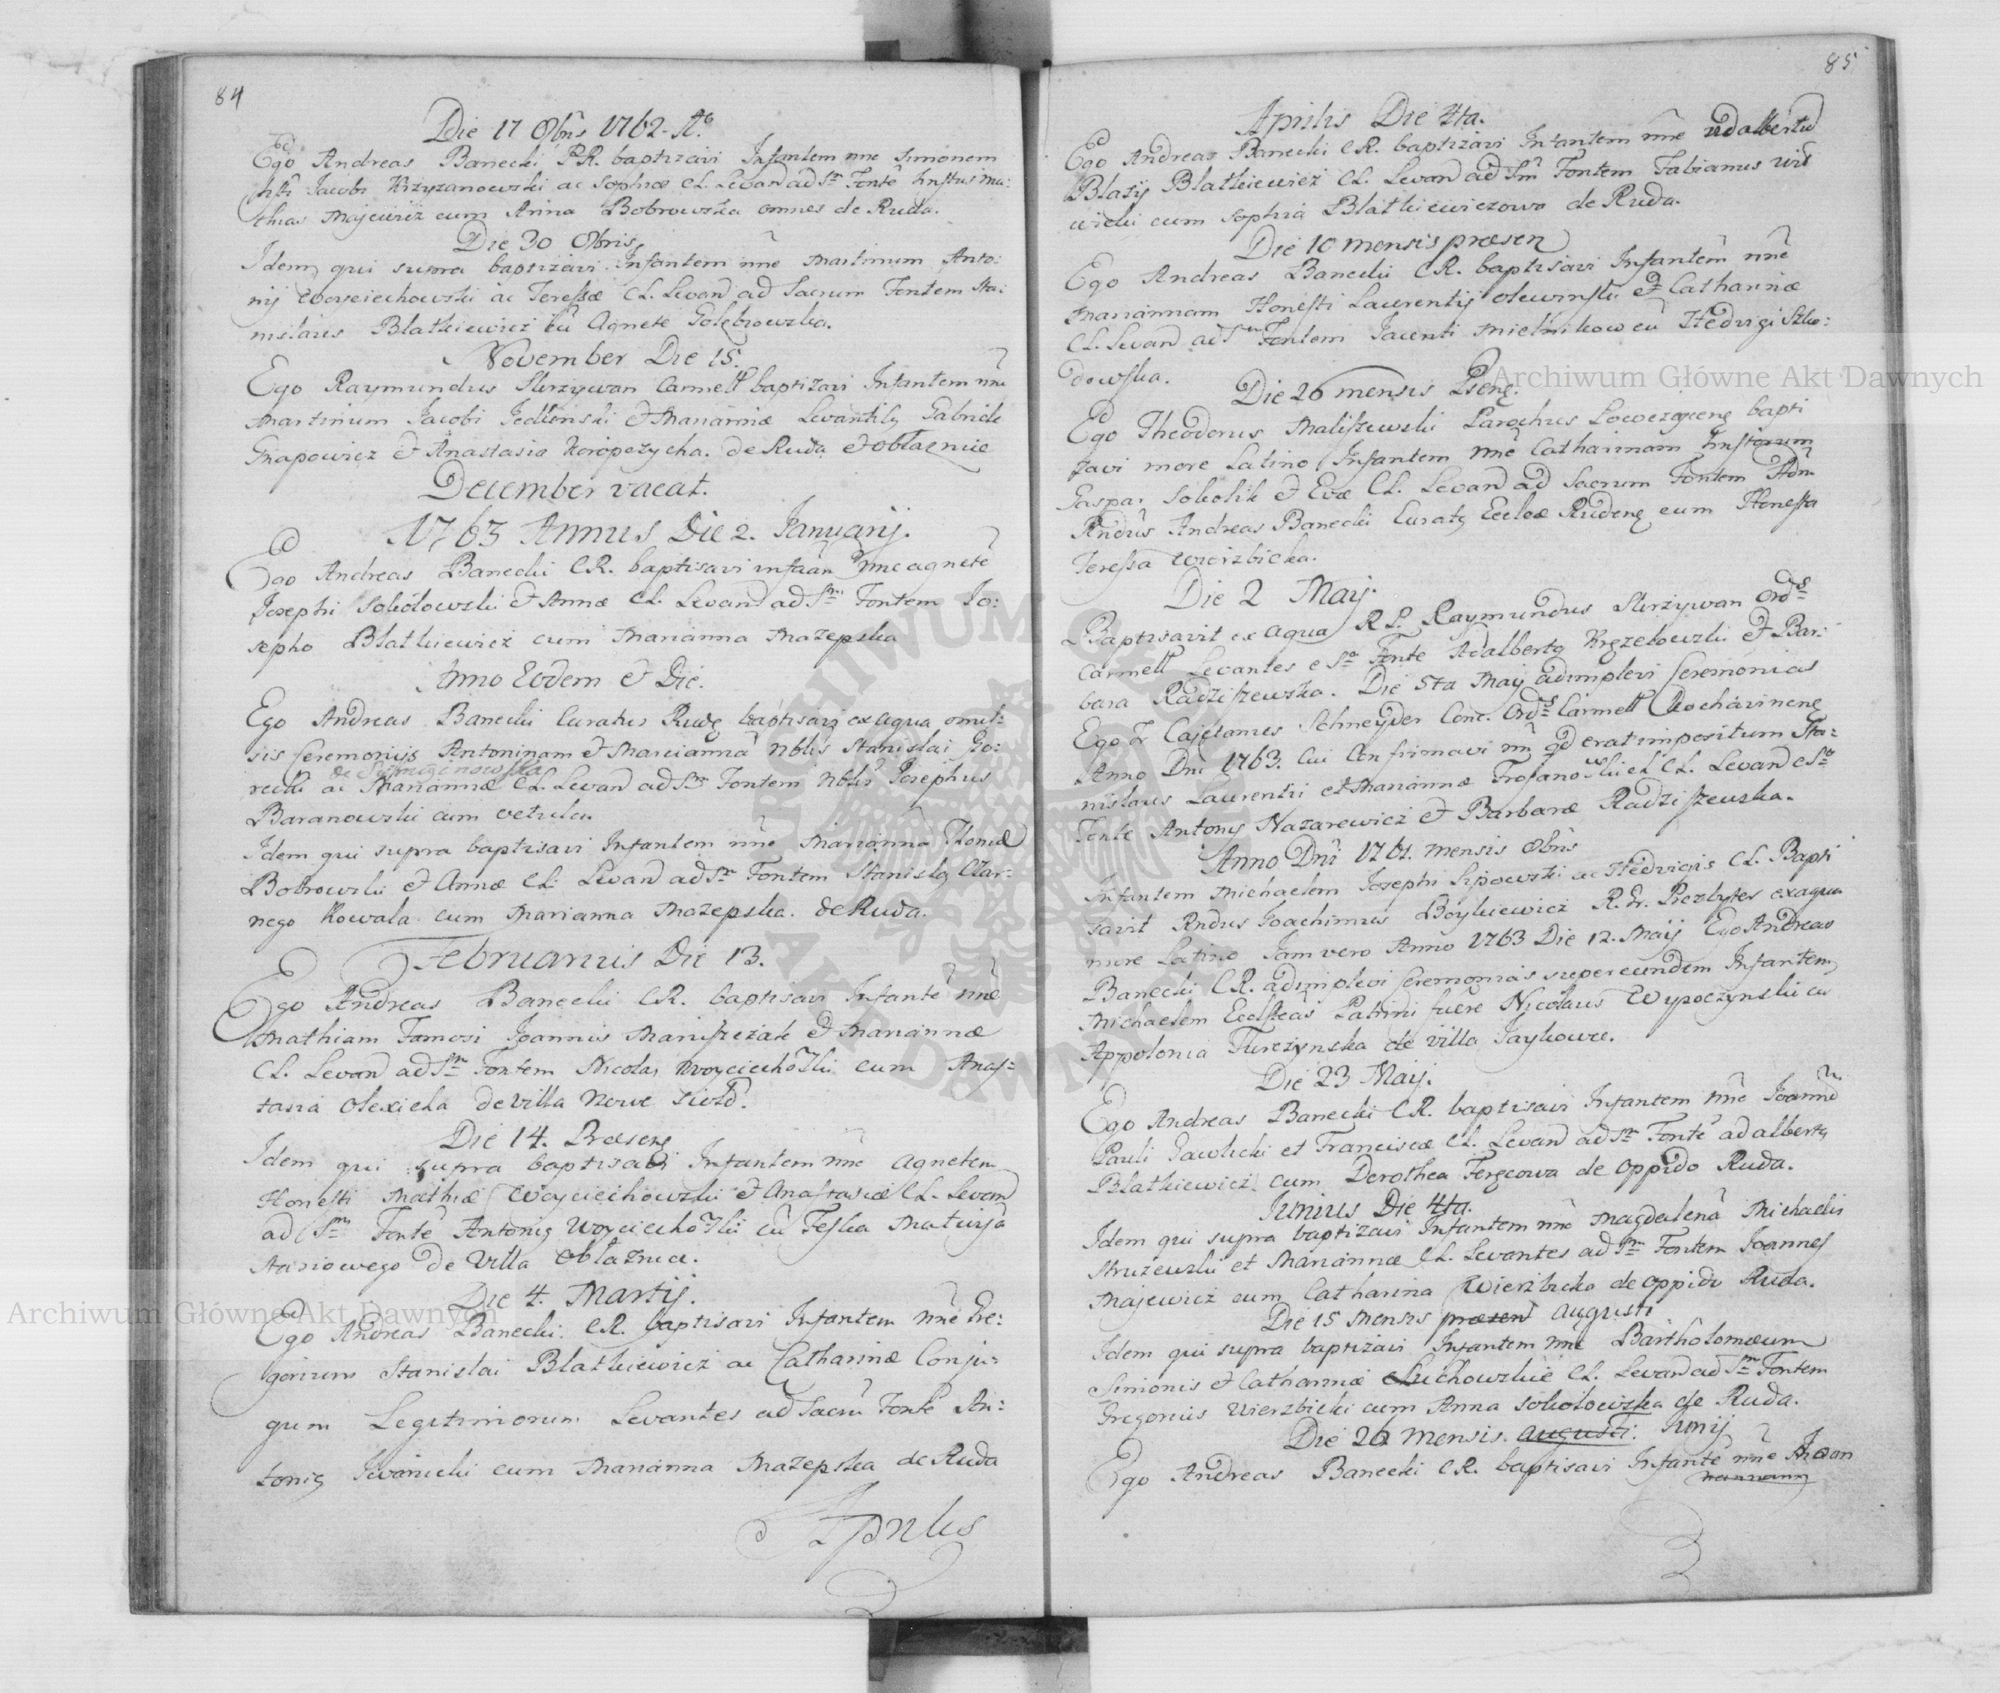 84
Die 17 8bris 1762. Ao
Ego Andreas Banecki CR. baptizavi Infantem nne Simonem
Jacobi Krzyzanowski ac Sophiæ CL. Levand ad Sm Fonte Ma:
thias Majewicz cum Anna Bobrowska omnes de Ruda.
Die 30 8bris
Idem qui supra baptizavi Infantem nne Martinum Anto:
nij Woyciechowski ac Teressæ CL. Levand ad Sacrum Fontem Sta:
nislaus Blatkiewicz cu Agnete Golębiowska.
November Die 15.
Ego Raymundus Skrzywan Carmelt baptizavi Infantem nne
Martinum Jacobi Jedlenski et Mariannæ Levantib9 Gabriele
Gnapowicz et Anastasia de Ruda et Oblaznice
December vacat.
1763 Annus Die 2. Januarij.
Ego Andreas Banecki CR. baptisavi infan nne Agnete
Josephi Sokolowski et Annæ CL. Levand ad Sm Fontem Jo:
sepho Blatkiewicz cum Marianna Mazepska
Anno Eodem et Die.
Ego Andreas Banecki Curatus Rudę baptisavi ex aqua omis-
sis Ceremonijs Antoninam et Mariannā Nblis Stanislai Go:
recki ac Mariannæ CL. Levand ad Sm Fontem Nblis Josephus
Baranowski cum vetula
Idem qui supra baptisavi Infantem nne Mariannā Thomæ
Bobrowski et Annæ CL. Levand ad Sm Fontem Stanisl9 Czar-
nego Kowala cum Marianna Mazepska. de Ruda.
Februarius Die 13.
Ego Andreas Banecki CR. baptisavi Infante nne
Mathiam Famosi Joannis et Mariannæ
CL. Levand ad Sm Fontem Nicola9 Woyciechowski cum Anas-
tasia Olexicka de villa Nowe
Die 14. Præsen9
Idem qui supra baptisavi Infantem nne Agnetem
Honesti Mathiæ Woyciechowski et Anastasiæ CL. Levand
ad Sm Fonte Antoni9 Woyciechowski cu Teska
de Villa Oblaznice.
Die 4. Martij.
Ego Andreas Banecki CR. baptisavi Infantem nne Gre:
gorium Stanislai Blatkiewicz ac Catharinæ Conju-
gum Legitimorum Levantes ad Sacru Fonte An:
toni9 Iwanicki cum Marianna Mazepska de Ruda
Aprilis
85
Aprilis Die 4ta.
Ego Andreas Banecki CR. baptizavi Infantem nne Adalbertu
Blasij Blatkiewicz CL. Levand ad Sm Fontem Fabianus
wicki cum Sophia Blatkiewiczowa de Ruda.
Die 10 mensis præsen
Ego Andreas Banecki CR. baptisavi Infantem nne
Mariannam Honesti Laurentij Olewinski et Catharinæ
CL. Levand ad Sm Fontem Jacenti Mielnikow cu Hedvigi Szko:
dowska.
Die 26 mensis Psen9.
Ego Theodorus Maliszewski Parochus bapti
zavi more Latino Infantem nne Catharinam
Gaspar Sokolik et Evæ CL. Levand ad Sacrum Fontem Adm
Rndus Andreas Banecki Curat9 Eccle Ruden9 cum Honesta
Teressa Wierzbicka.
Die 2 Maij.
Baptisavit ex aqua R.P. Raymundus Skrzywan Ords
Carmelt Levantes e So Fonte Adalbert9 et Bar:
bara Radziszewska. Die 5ta Maij adimplevi Ceremonias
Ego fr Cajetanus Schneyder Conc. Ords Carmelt
Anno Dni 1763. Cui confirmavi nn qd erat impositum Sta:
nislaus Laurentij et Mariannæ Trojanowski et CL. Levand e So
Fonte Antony Nazarewicz et Barbaræ Radziszewska.
Anno Dni 1761. mensis 8bris
Infantem Michaelem Josephi Lipowski ac Hedvigis CL. Bapti
savit Rndus Joachimus Boykiewicz R. Gr. Prezbyter ex aqua
more Latino Jam vero Anno 1763 Die 12. Maij Ego Andreas
Banecki CR. adimplevi Ceremonias super eundem Infantem
Michaelem Patrini fuere Nicolaus Wypoczynski cu
Appolonia Turczynska de villa Jaykowce.
Die 23 Maij.
Ego Andreas Banecki CR. baptisavi Infantem nne Joanne
Pauli Pawlicki et Franciscæ CL. Levand ad Sm Fonte Adalbert9
Blatkiewicz cum Dorothea de Oppido Ruda.
Junius Die 4ta.
Idem qui supra baptizavi Infantem nne Magdalenā Michaelis
Struzewski et Mariannæ CL. Levantes ad Sm Fontem Joannes
Majewicz cum Catharina Wierzbicka de oppido Ruda.
Die 15 Mensis præsent Augusti
Idem qui supra baptizavi Infantem nne Bartholomæum
Simonis et Catharinæ CL. Levand ad Sm Fontem
Gregorius Wierzbicki cum Anna Sokolowska de Ruda.
Die 26 Mensis. Augusti. Junij
Ego Andreas Banecki CR. baptisavi Infante nne Joan
Archiwum Główne Akt Dawnych
Archiwum Główne Akt Dawnych